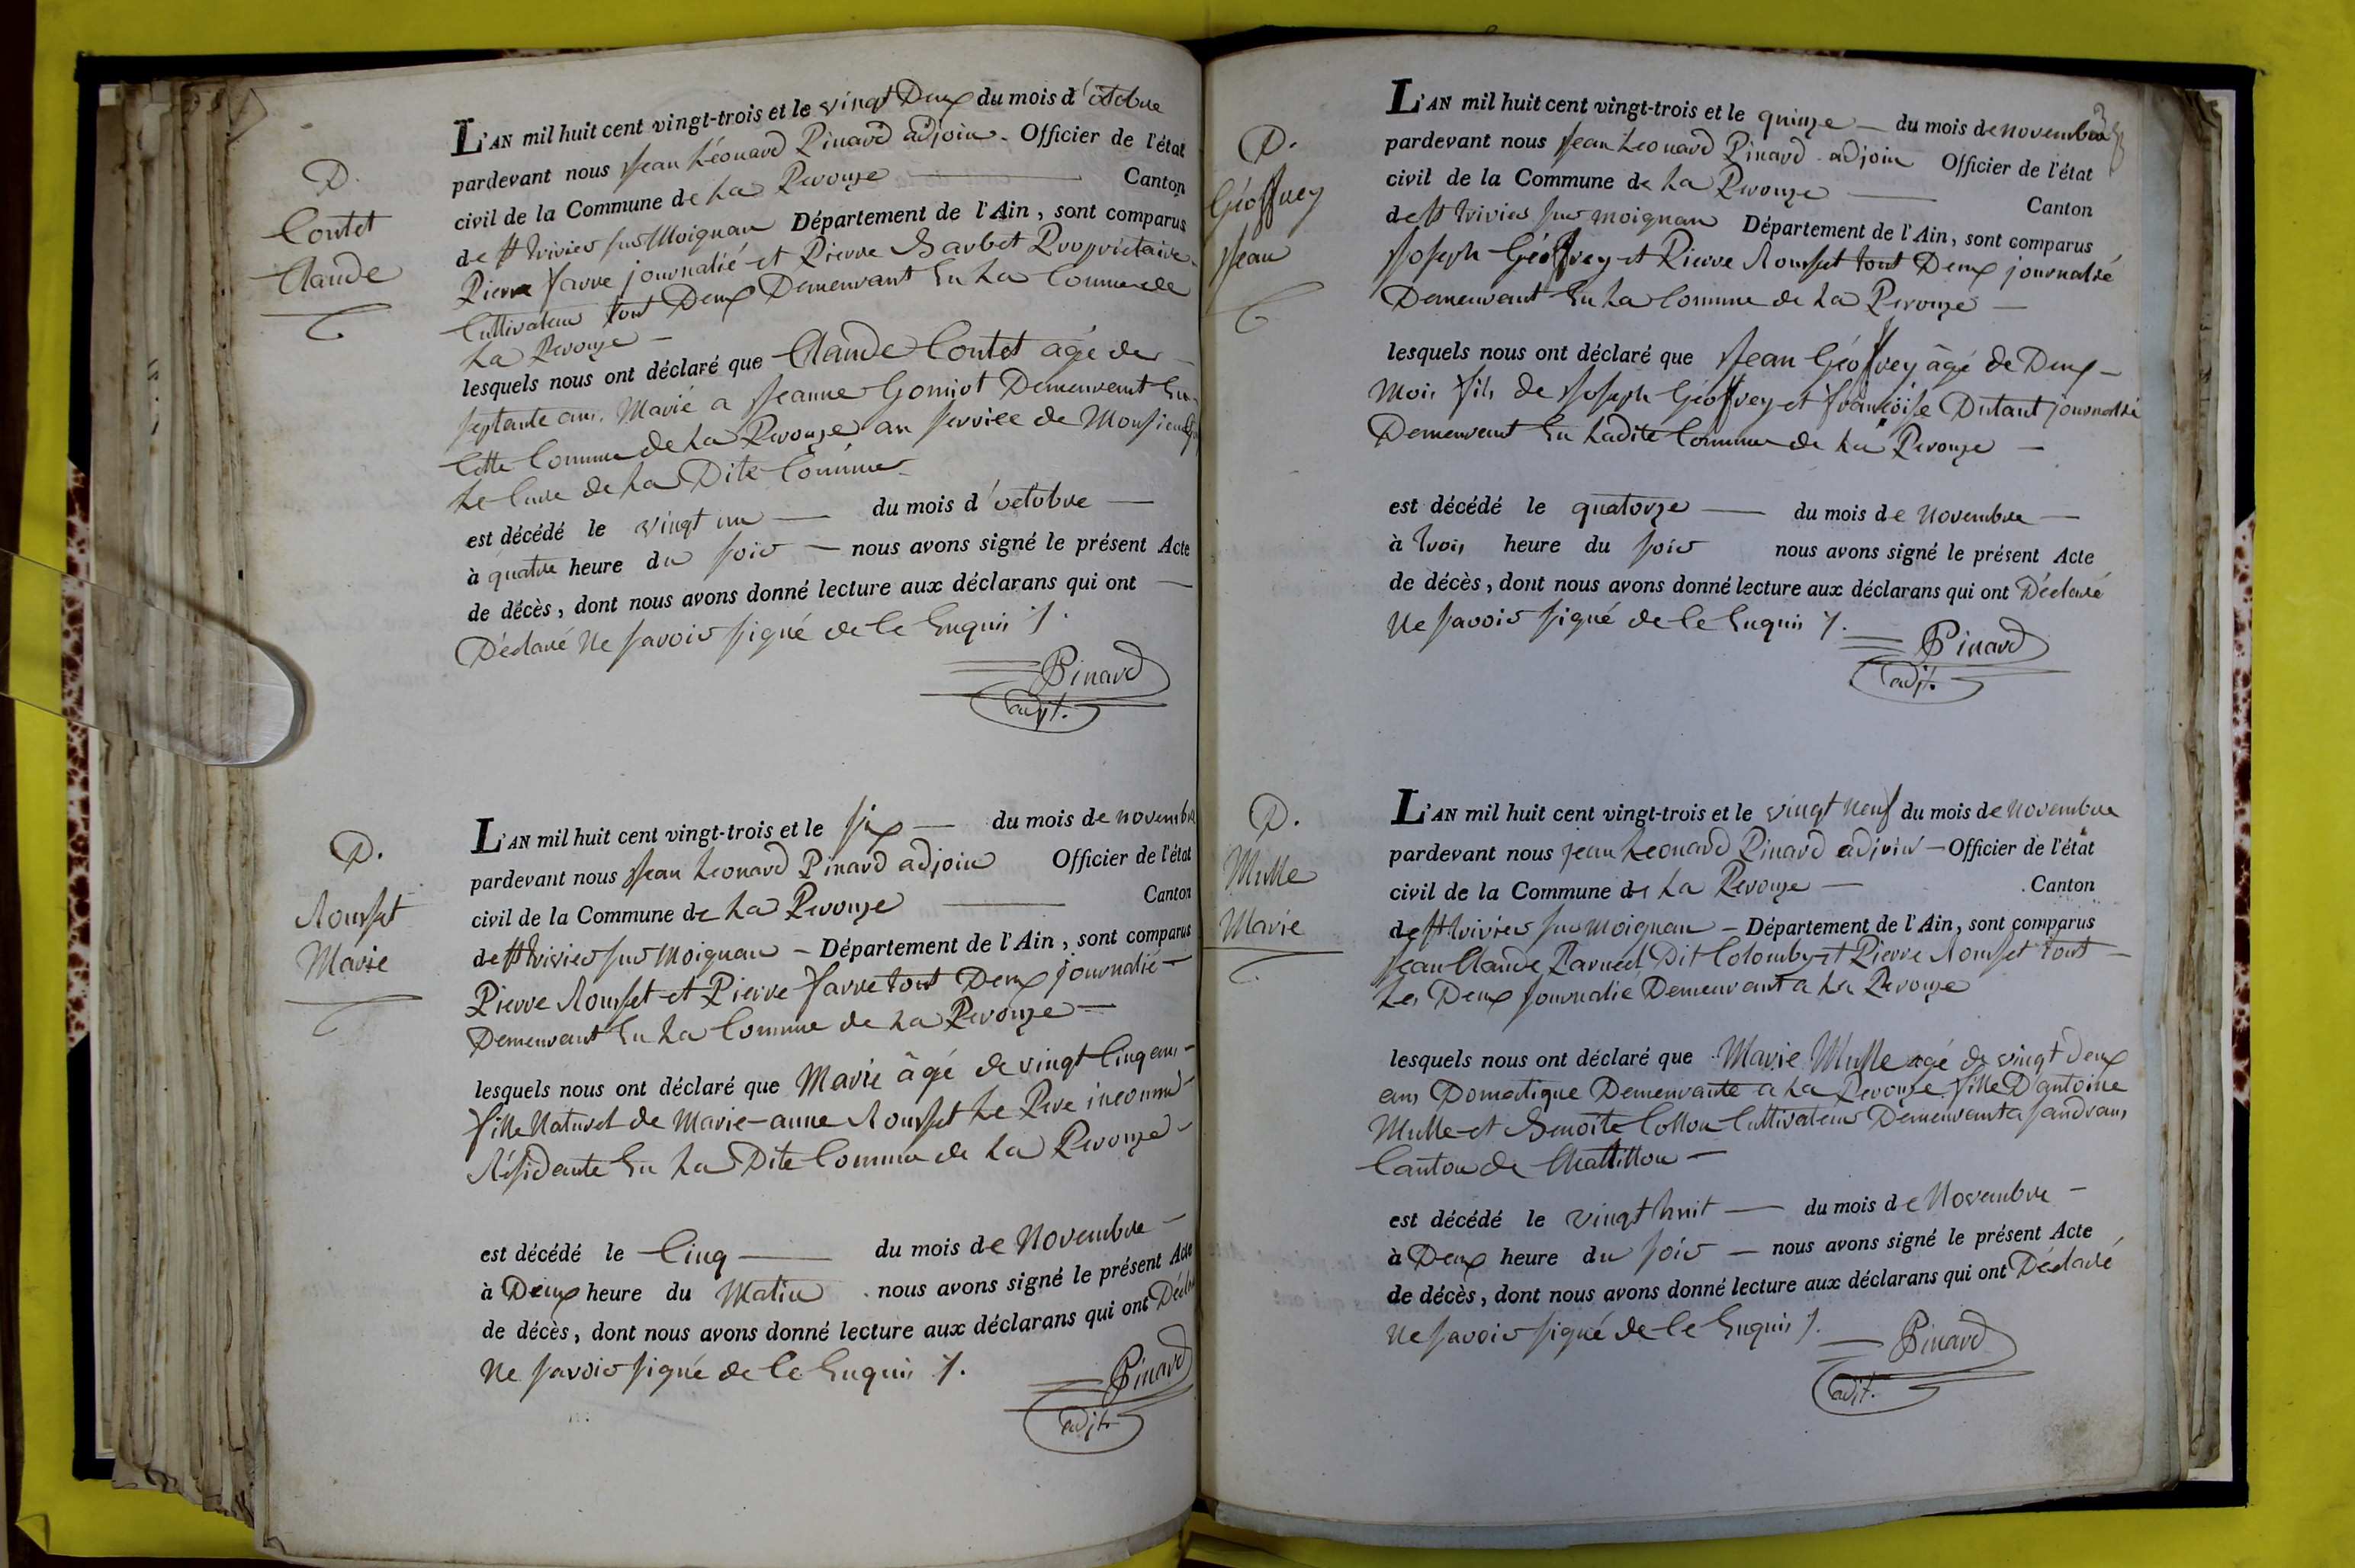 D.
Contet
Claude
L'AN mil huit cent vingt-trois et le vingt Deux du mois d'octobre
pardevant nous Jean Léonard Pinard adjoin - Officier de l'état
civil de la Commune de La Perouze Canton
de st trivier sur Moignan Département de l'Ain, sont comparus
Pierre favre journalié et Pierre Barbet Propriétaire
Cultivateur tout Deux Demeurant En La Commune de
La Perouze
lesquels nous ont déclaré que Claude Contet agé de
septante ans, Marié a Jeanne Gonnot Demeurent En
Cette Commune de La Perouze au service de Monsieur
Le Cure de La Dite Commune
est décédé le vingt un du mois d'octobre
à quatre heure du soir nous avons signé le présent Acte
de décès, dont nous avons donné lecture aux déclarans qui ont
Déclaré Ne savoir signé de Ce Enquis ./.
Pinard
adjt.
D.
Rousset
Marie
L'AN mil huit cent vingt-trois et le six du mois de novembre
pardevant nous Jean Leonard Pinard adjoin Officier de l'état
civil de la Commune de La Perouze Canton
de st trivier sur Moignan - Département de l'Ain, sont comparus
Pierre Rousset et Pierre favre tout Deux journalié
Demeurant En La Commune de La Perouze
lesquels nous ont déclaré que Marie âgé de vingt Cinq ans
fille Naturel de Marie-anne Rousset Le Pere inconnu
Résidante En La Dite Commune de La Perouze
est décédé le Cinq du mois de Novembre
à Deux heure du Matin nous avons signé le présent Acte
de décès, dont nous avons donné lecture aux déclarans qui ont Déclaré
Ne savoir signé de Ce Enquis ./.
Pinard
adjt.
D.
Géoffrey
Jean
L'AN mil huit cent vingt-trois et le quinze du mois de novembre
pardevant nous Jean Leonard Pinard adjoin Officier de l'état
civil de la Commune de La Perouze Canton
de st trivier sur moignan Département de l'Ain, sont comparus
Joseph Géoffrey et Pierre Rousset tout Deux journalié
Demeurant En La Commune de La Perouze
lesquels nous ont déclaré que Jean Géoffrey âgé de Deux
Mois fils de Joseph Géoffrey et françoise Dutant journalié
Demeurent En Ladite Commune de La Perouze
est décédé le quatorze du mois de novembre
à trois heure du soir nous avons signé le présent Acte
de décès, dont nous avons donné lecture aux déclarans qui ont Déclaré
Ne savoir signé de Ce Enquis ./.
Pinard
adjt.
D.
Mulle
Marie
L'AN mil huit cent vingt-trois et le vingt neuf du mois de Novembre
pardevant nous jean Leonard Pinard adjoin - Officier de l'état
civil de la Commune de La Perouze Canton
de st trivier sur Moignan - Département de l'Ain, sont comparus
Jean Claude Dit Colomby et Pierre Rousset tout
Les Deux Journalié Demeurant a La Perouze
lesquels nous ont déclaré que Marie Mulle agé de vingt Deux
ans Domestique Demeurante a La Perouze fille D'antoine
Mulle et Benoite Collon Cultivateur Demeurant a sandrans
Canton de Chattillon
est décédé le vingt huit du mois de Novembre
à Deux heure du soir - nous avons signé le présent Acte
de décès, dont nous avons donné lecture aux déclarans qui ont Déclaré
Ne savoir signé de Ce Enquis ./.
Pinard
adjt.